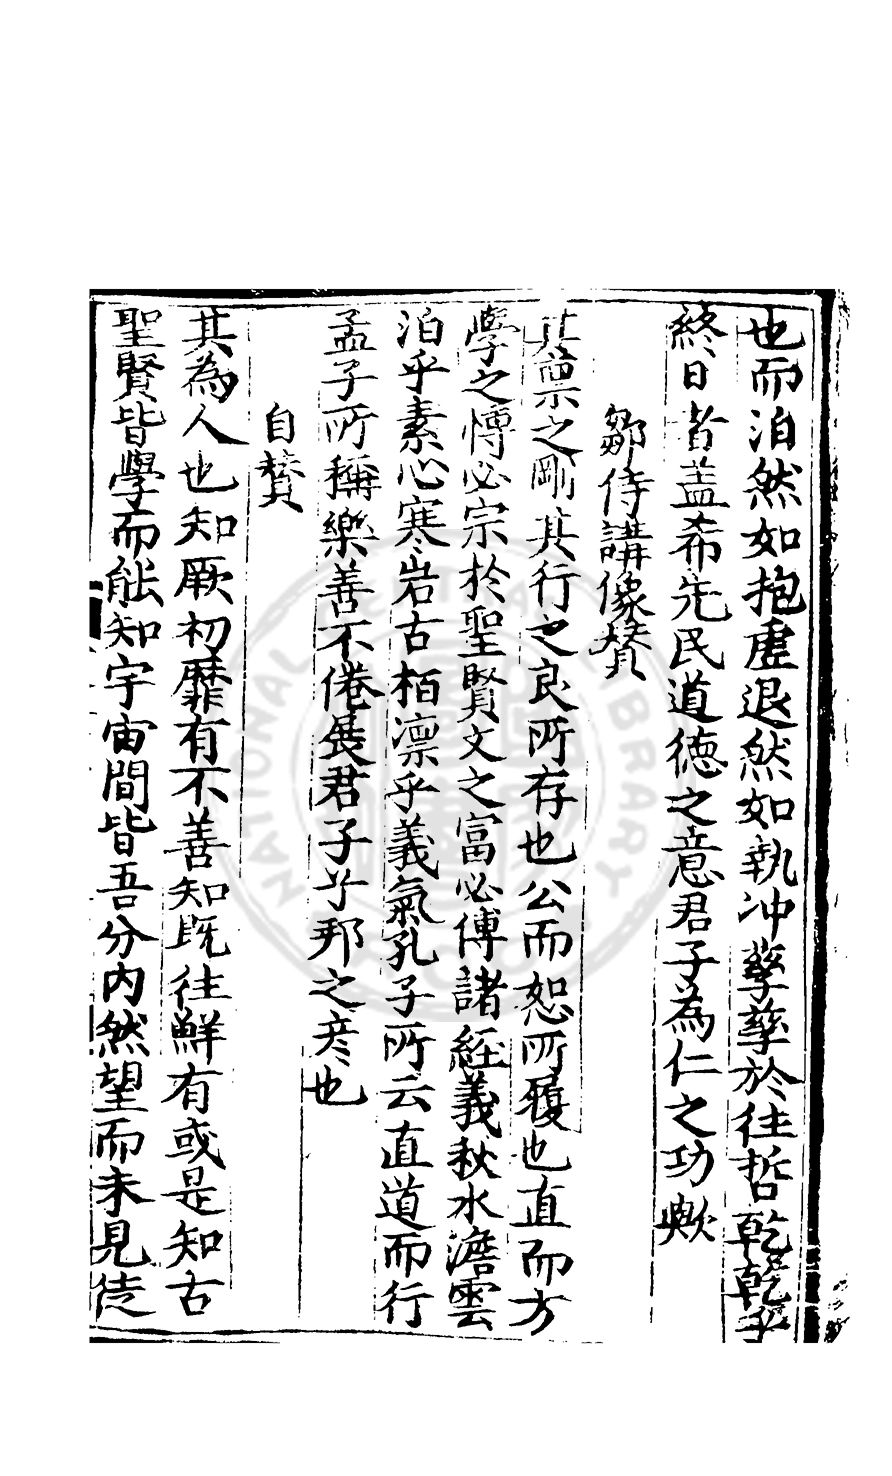 也而泊然如抱虛退然如執冲孳孳於往哲乾乾乎
終日者盖希先民道德之意君子為仁之功歟
鄒侍講像贊
其稟之剛其行之良所存也公而恕所履也直而方
學之慱必宗於聖賢文之富必傅諸經義秋水澹雲
泊乎素心寒岩古栢凛乎義氣孔子所云直道而行
孟子所稱樂善不倦展君子乎邦之彦也
自贊
其為人也知厥初靡有不善知既往鮮有或是知古
聖賢皆學而能知宇宙間皆吾分内然望而未見徒
NATIONAL CENTRAL LIBRARY